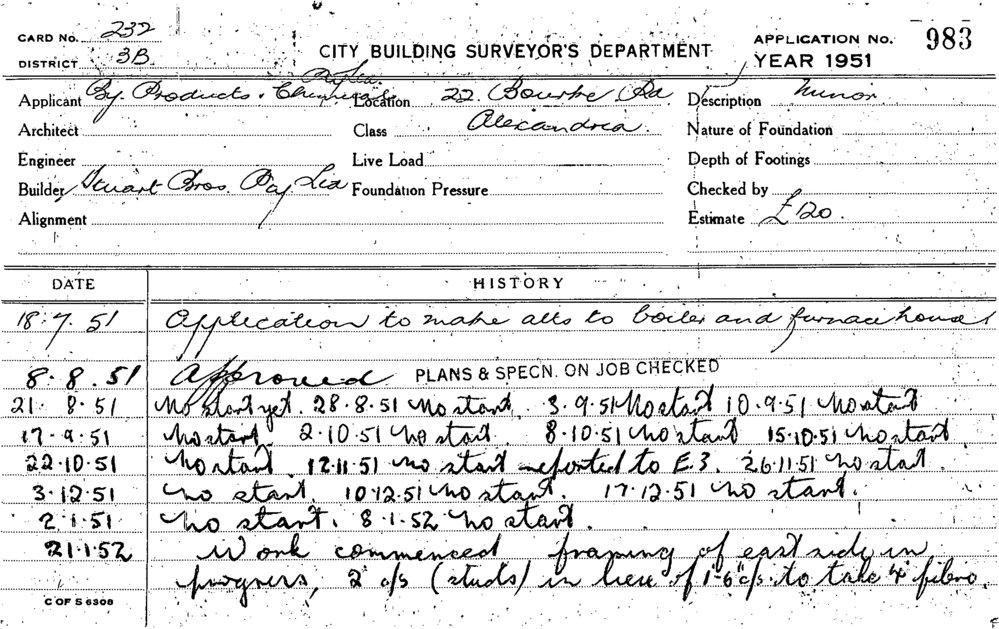 CARD No. 232
DISTRICT 3B
CITY BUILDING SURVEYOR'S DEPARTMENT
APPLICATION No. 983
YEAR 1951
Applicant By. Products & Chemicals Pty Ltd. Location 22 Bourke Rd Description Minor
Alexandria.
Architect Class Nature of Foundation
Engineer Live Load Depth of Footings
Builder Stuart Bros. Pty Ltd Foundation Pressure Checked by
Alignment Estimate £120.
DATE HISTORY
18.7.51 Application to make alts to boiler and furnace house
8.8.51 Approved PLANS & SPECN. ON JOB CHECKED
21.8.51 No start yet. 28.8.51 No start. 3.9.51 No start 10.9.51 No start
17.9.51 No start. 2.10.51 No start. 8.10.51 No start 15.10.51 No start
22.10.51 No start. 12.11.51 no start reported to E.3. 26.11.51 no start.
3.12.51 no start. 10.12.51 no start. 17.12.51 no start.
2.1.51 no start. 8.1.52 no start.
21.1.52 Work commenced framing of east side in
progress, 2' c/s (studs) in lieu of 1-6" c/s to take 4' fibro.
C OF S 6308